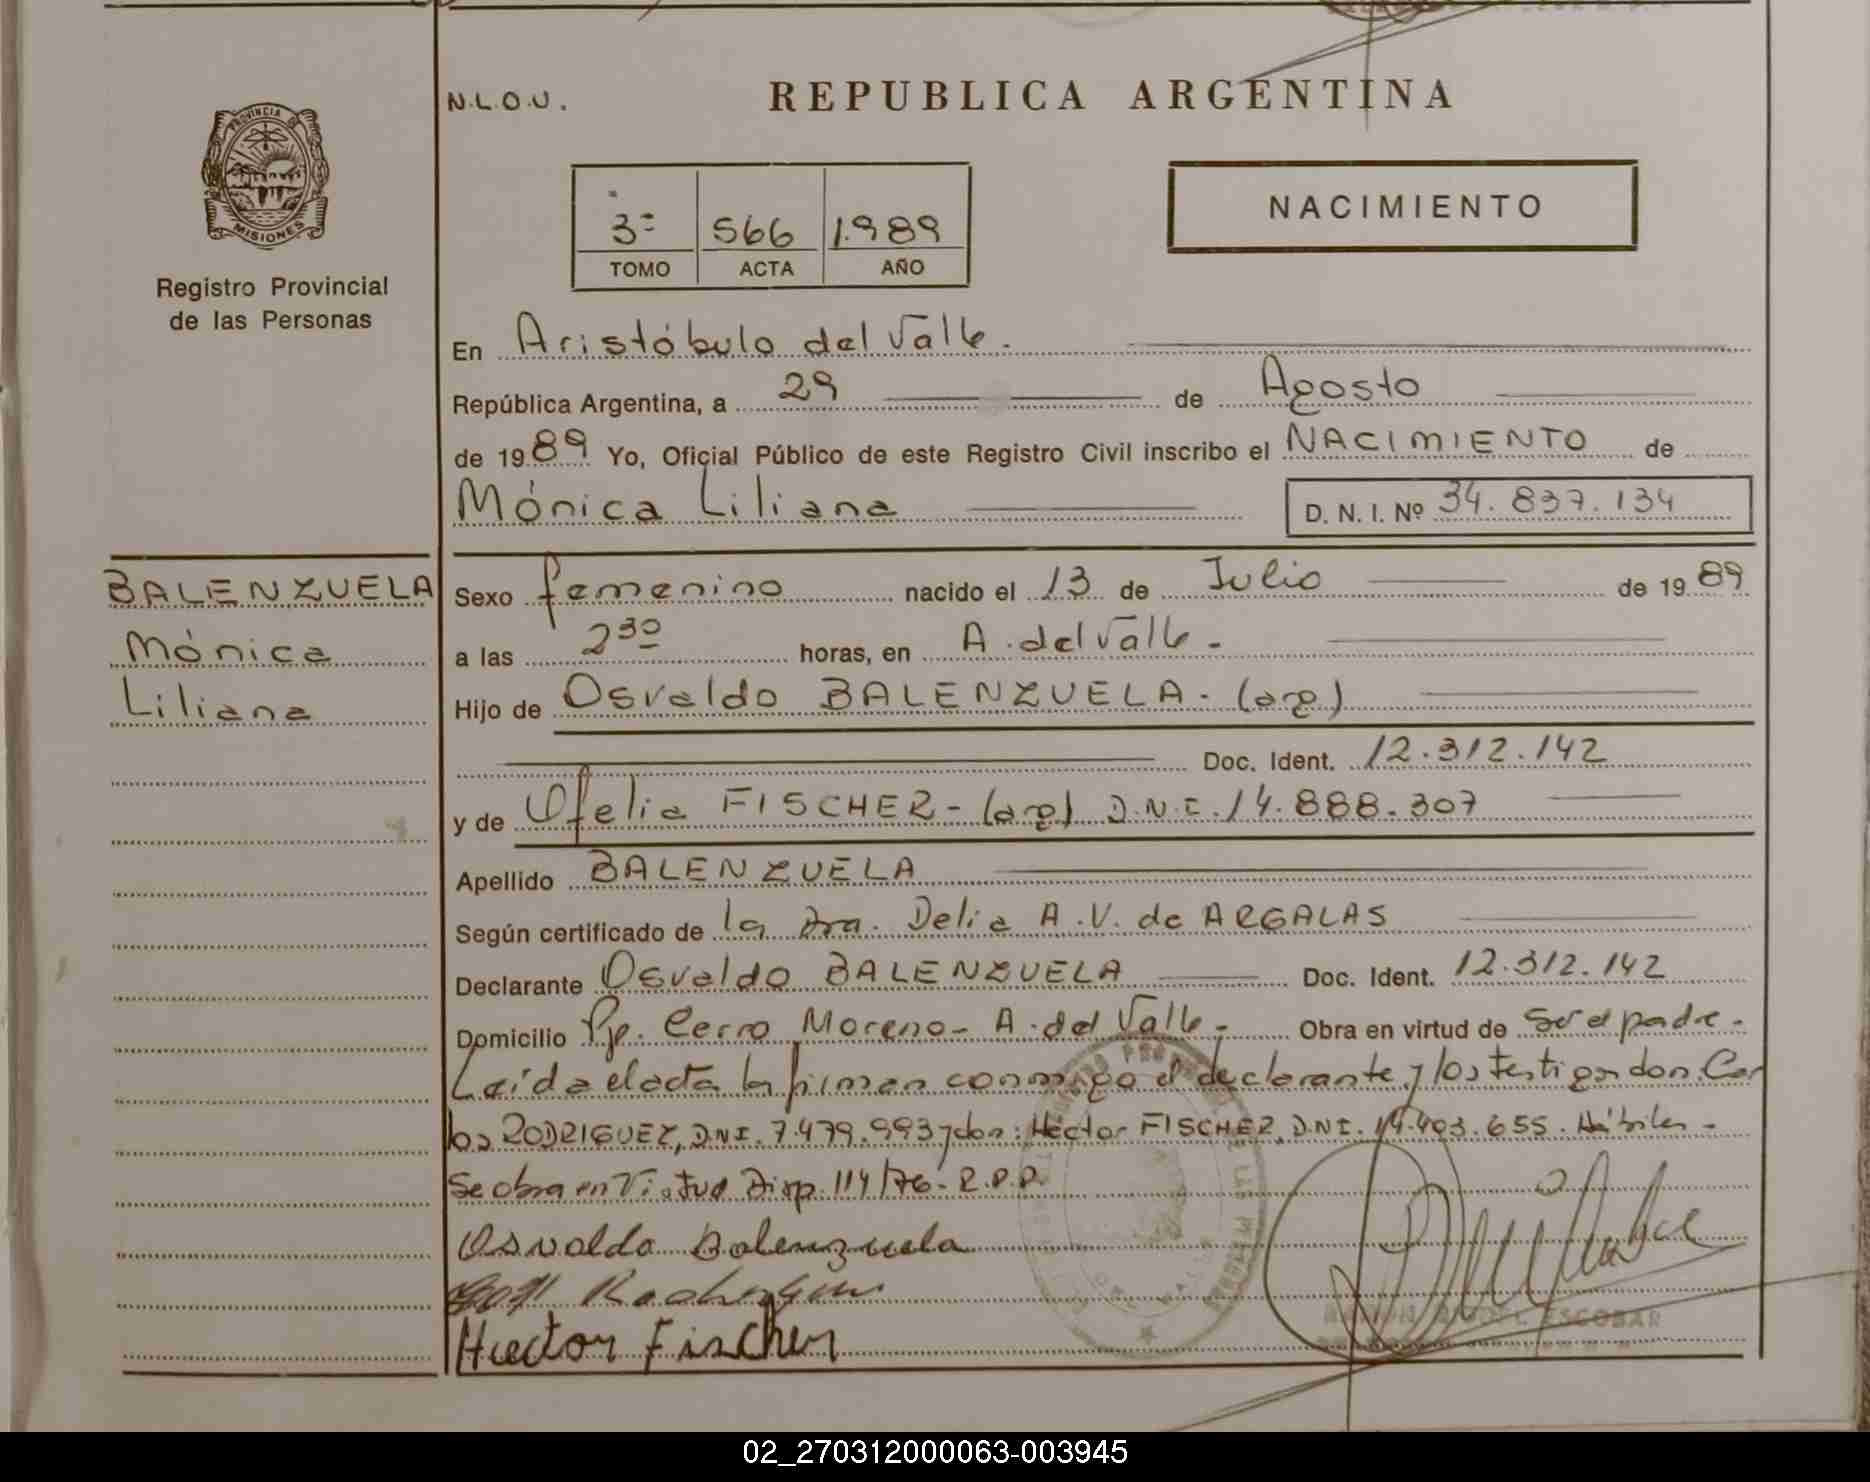 N.L.O.U.
REPUBLICA ARGENTINA
PROVINCIA DE
MISIONES
Registro Provincial
de las Personas
3º 566 1.989
TOMO ACTA AÑO
NACIMIENTO
En Aristóbulo del Valle.
República Argentina, a 29 de Agosto
de 1989 Yo, Oficial Público de este Registro Civil inscribo el NACIMIENTO de
Mónica Liliana D. N. I. Nº 34.837.134
BALENZUELA
Mónica
Liliana
Sexo femenino nacido el 13 de Julio de 1989
a las 2 30 horas, en A. del Valle.-
Hijo de Osvaldo BALENZUELA.- (arg)
Doc. Ident. 12.312.142
y de Ofelia FISCHER- (arg) D.N.I. 14.888.307
Apellido BALENZUELA
Según certificado de la Dra. Delia A.V. de ARGALAS
Declarante Osvaldo BALENZUELA Doc. Ident. 12.312.142
Domicilio Pje. Cerro Moreno- A. del Valle.- Obra en virtud de Ser el padre.-
Leída el acta la firman conmigo el declarante y los testigos don: Car
los RODRIGUEZ, DNI. 7.479.993 y don: Héctor FISCHER, DNI. 14.403.655. Hábiles.-
Se obra en Virtud Disp. 114/76- R.P.P.
Osvaldo Balenzuela
Huector Fischer
ESCOBAR
02_270312000063-003945